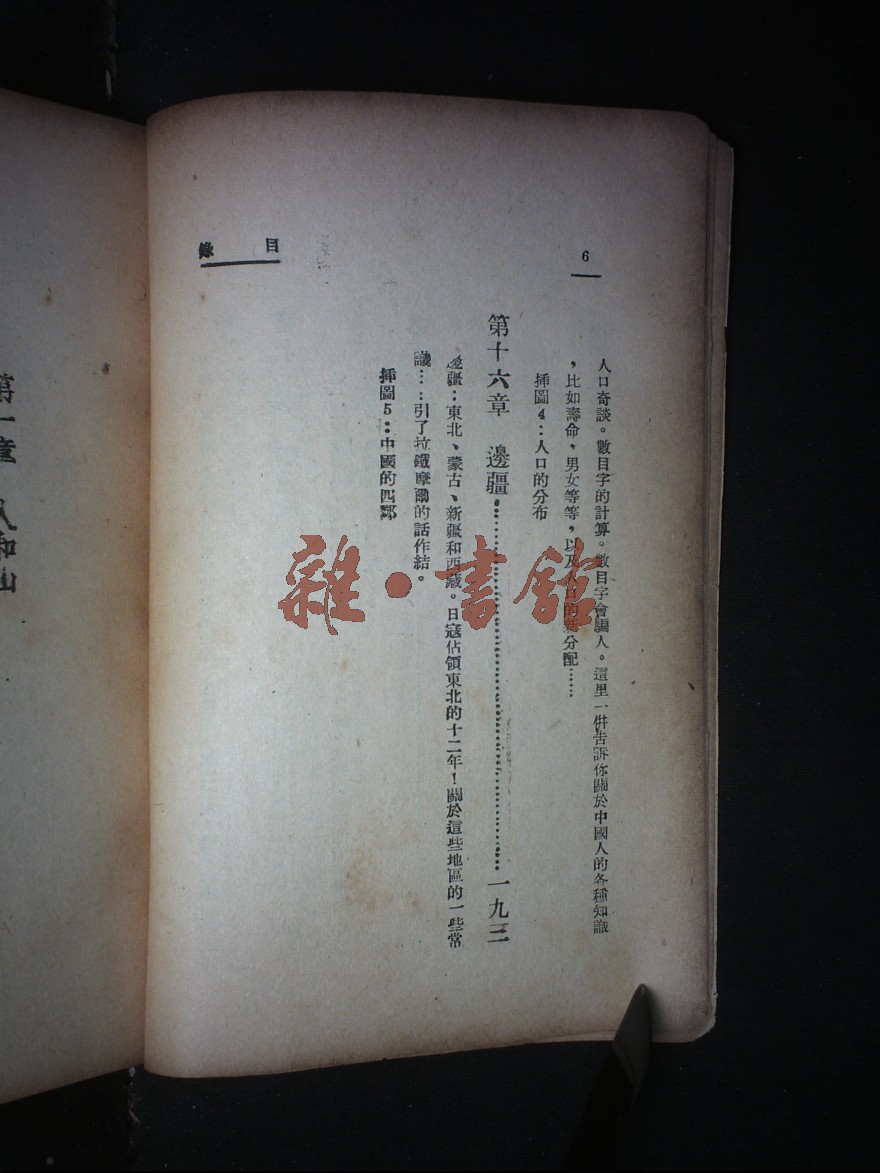 目錄
6
人口奇談。數目字的計算。數目字會騙人。這里一併告訴你關於中國人的各種知識
，比如壽命，男女等等，以及人口的 分配……
插圖4：人口的分布
第十六章　邊疆……一九三
邊疆：東北、蒙古、新疆和西藏。日寇佔領東北的十二年！關於這些地區的一些常
識……引了拉鐵摩爾的話作結。
插圖5：中國的四鄰
雜·書館
第一章　人和山